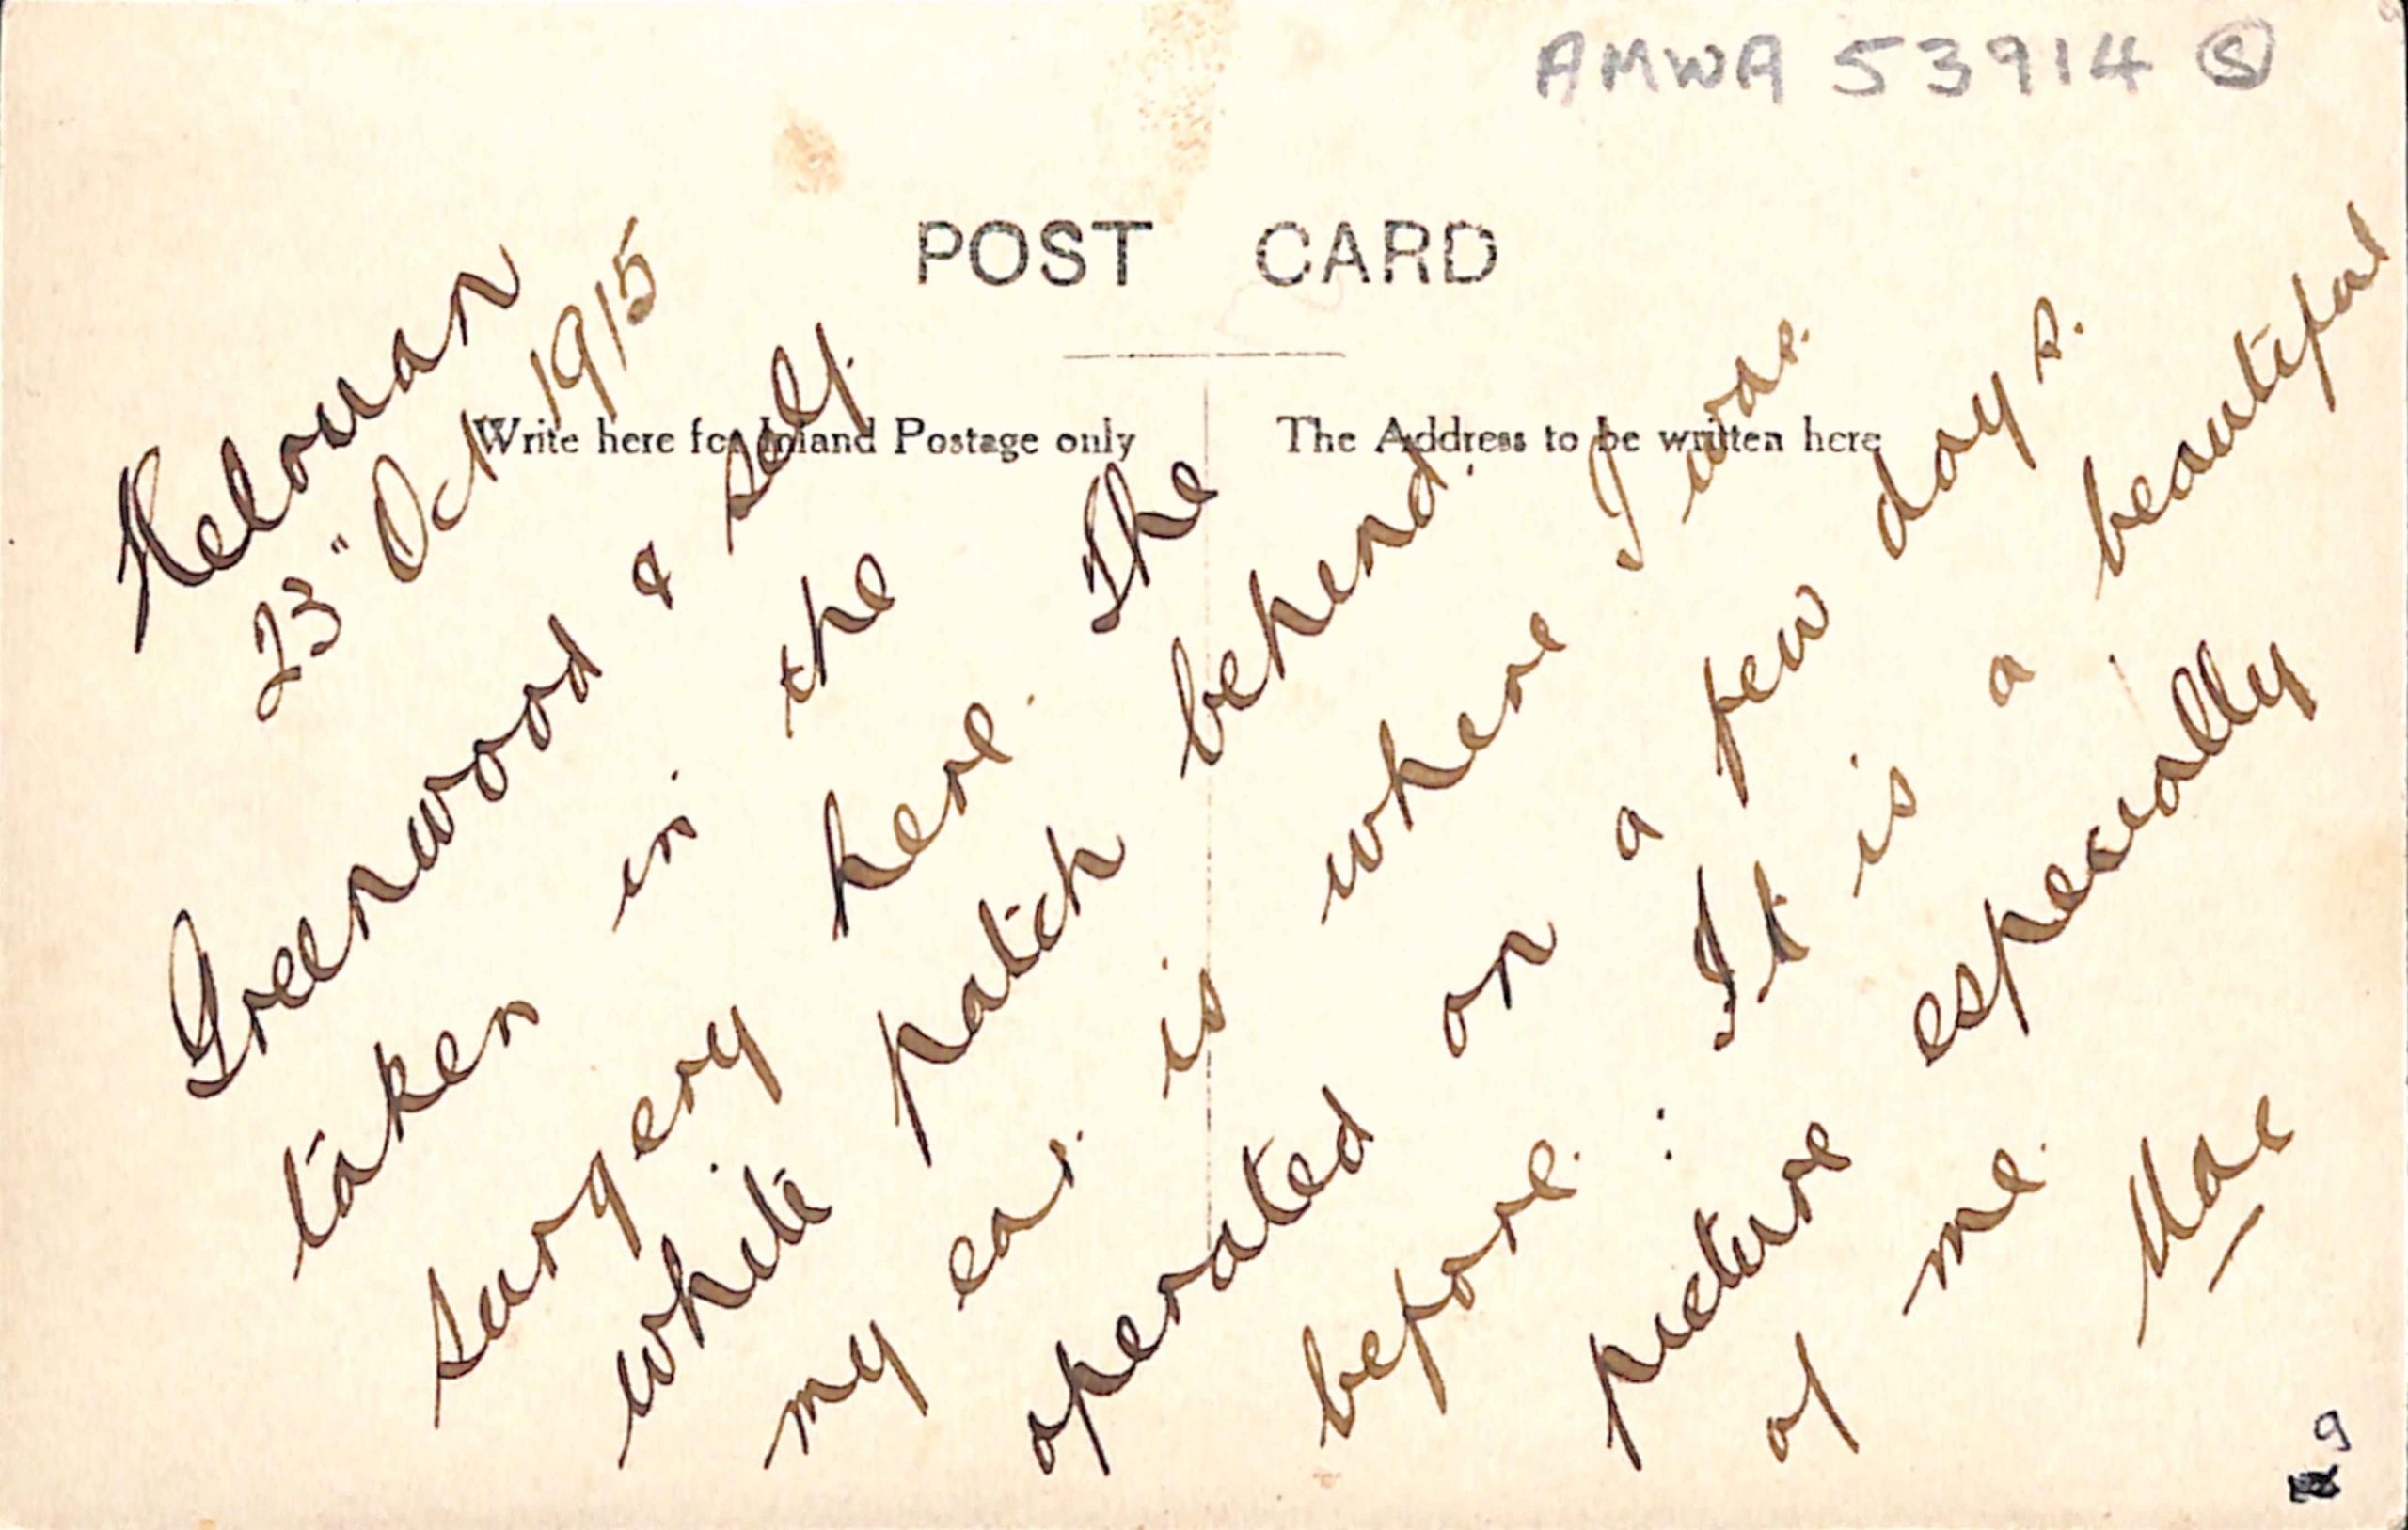 AMWA 53914 S
POST CARD
Write here for Inland Postage only
The Address to be written here
Helouan
23" Oct 1915
Greenwood & self.
taken in the
surgery here. The
white patch behind.
my ear. is where I was.
operated on a few days.
before. : It is a beautiful
picture especially
of me.
Mac
9